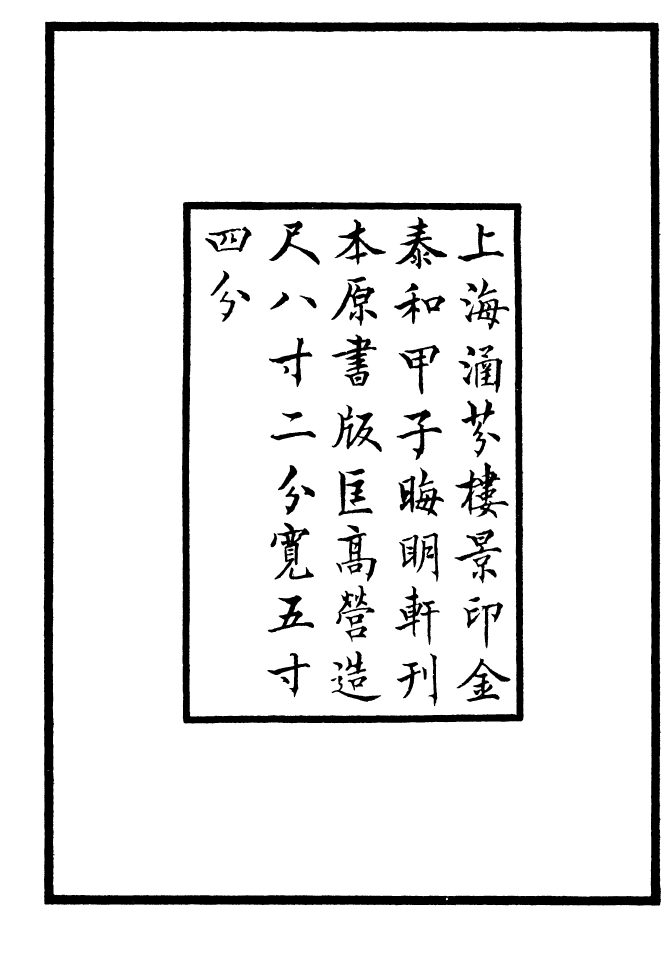 上海涵芬樓景印金
泰和甲子晦明軒刊
本原書版匡高營造
尺八寸二分寬五寸
四分